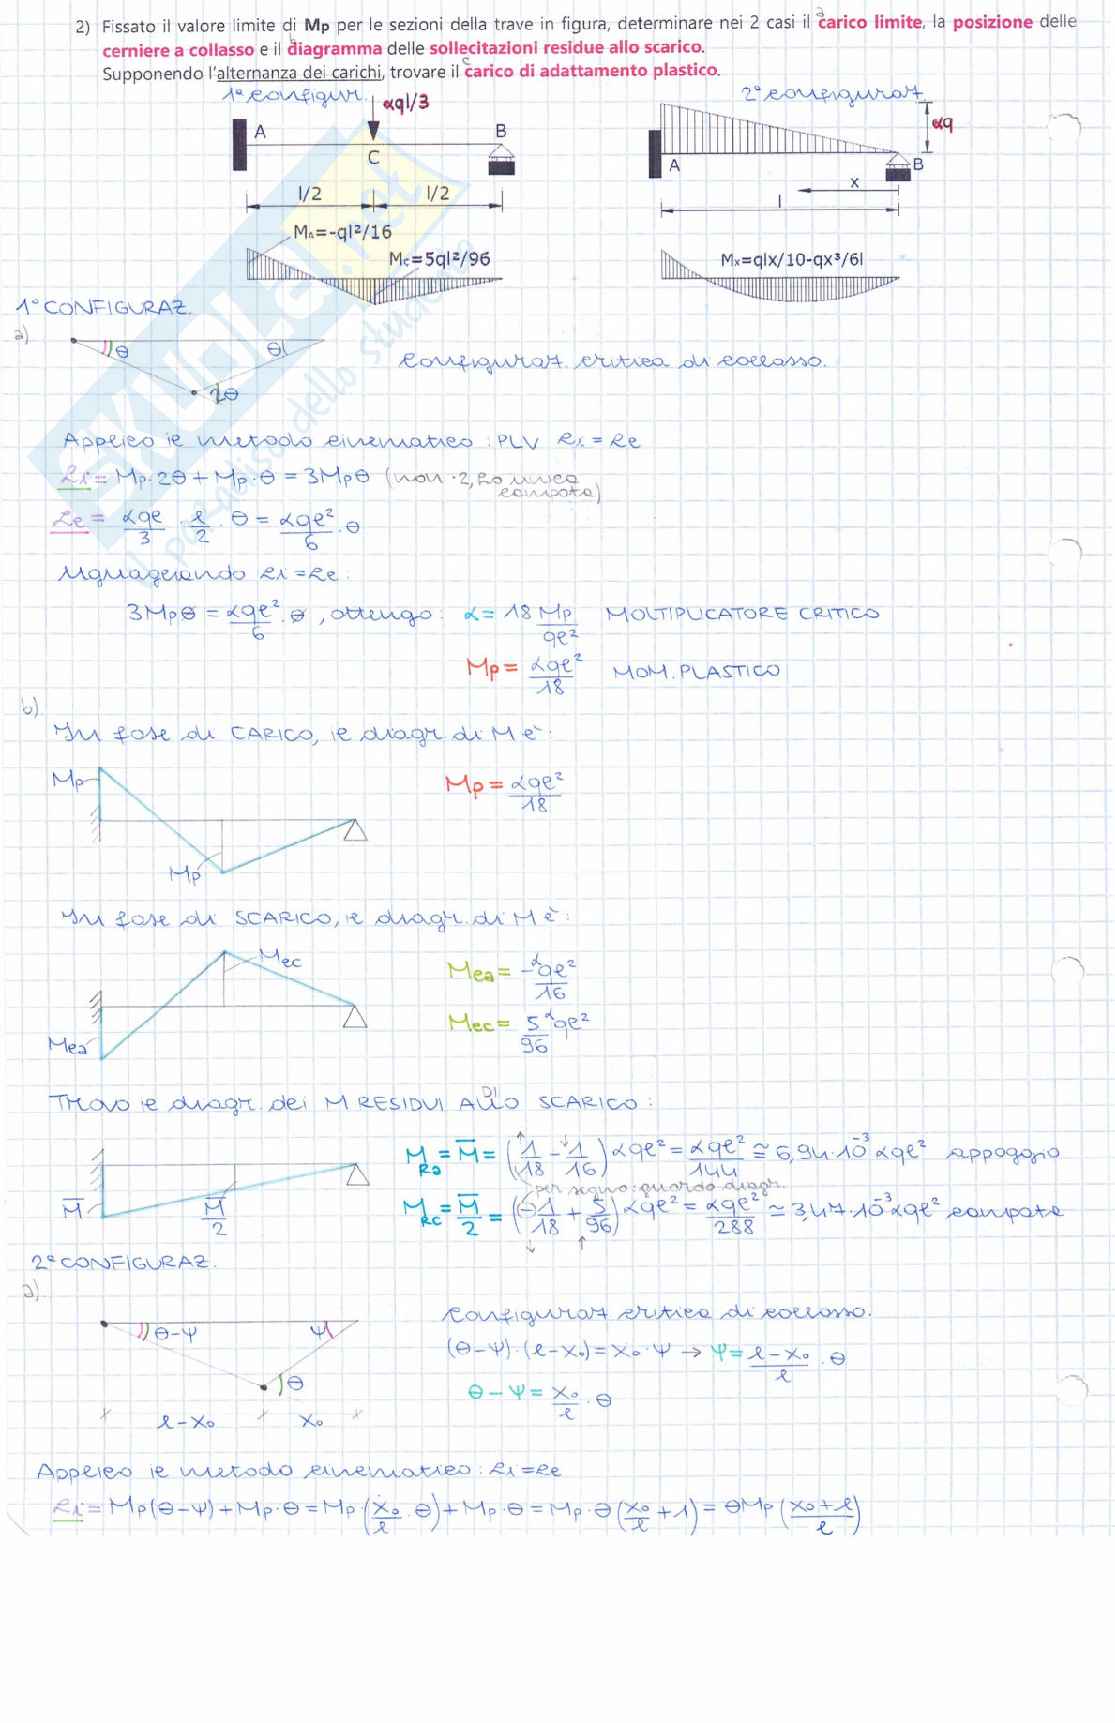 2) Fissato il valore limite di Mp per le sezioni della trave in figura, determinare nei 2 casi il carico limite, la posizione delle
cerniere a collasso e il diagramma delle sollecitazioni residue allo scarico.
Supponendo l'alternanza dei carichi, trovare il carico di adattamento plastico.
a
b
c
1ª CONFIGUR.
αql/3
A
B
C
l/2
l/2
MA=-ql²/16
Mc=5ql²/96
2ª CONFIGURAZ
αq
A
B
x
l
Mx=qlx/10-qx³/6l
1° CONFIGURAZ.
a)
θ
θ
2θ
Configuraz. critica di collasso.
Applico il metodo cinematico: PLV Li = Le
Li = Mp·2θ + Mp·θ = 3Mpθ (non ·2, ho unica campata)
Le = αql/3 · l/2 · θ = αql²/6 · θ
Uguagliando Li = Le:
3Mpθ = αql²/6 · θ, ottengo: α = 18 Mp/ql² MOLTIPLICATORE CRITICO
Mp = αql²/18 MOM. PLASTICO
b)
In fase di CARICO, il diagr. di M è:
Mp
Mp
Mp = αql²/18
In fase di SCARICO, il diagr. di M è:
Mec
Mea
Mea = -αql²/16
Mec = 5αql²/96
Trovo il diagr. dei M RESIDUI ALLO SCARICO:
DI
M̄
M̄/2
MRa = M̄ = (1/18 - 1/16) αql² = αql²/144 ≅ 6,94·10⁻³ αql² appoggio
per segno: guardo diagr.
MRc = M̄/2 = (-1/18 + 5/96) αql² = αql²/288 ≅ 3,47·10⁻³ αql² campata
2ª CONFIGURAZ.
a)
θ-ψ
ψ
θ
l-x₀
x₀
Configuraz critica di collasso.
(θ-ψ)·(l-x₀) = x₀·ψ → ψ = l-x₀/l · θ
θ-ψ = x₀/l · θ
Applico il metodo cinematico: Li = Le
Li = Mp(θ-ψ) + Mp·θ = Mp·(x₀/l · θ) + Mp·θ = Mp·θ(x₀/l + 1) = θMp(x₀+l/l)
SKUOLA.net
il paradiso dello studente